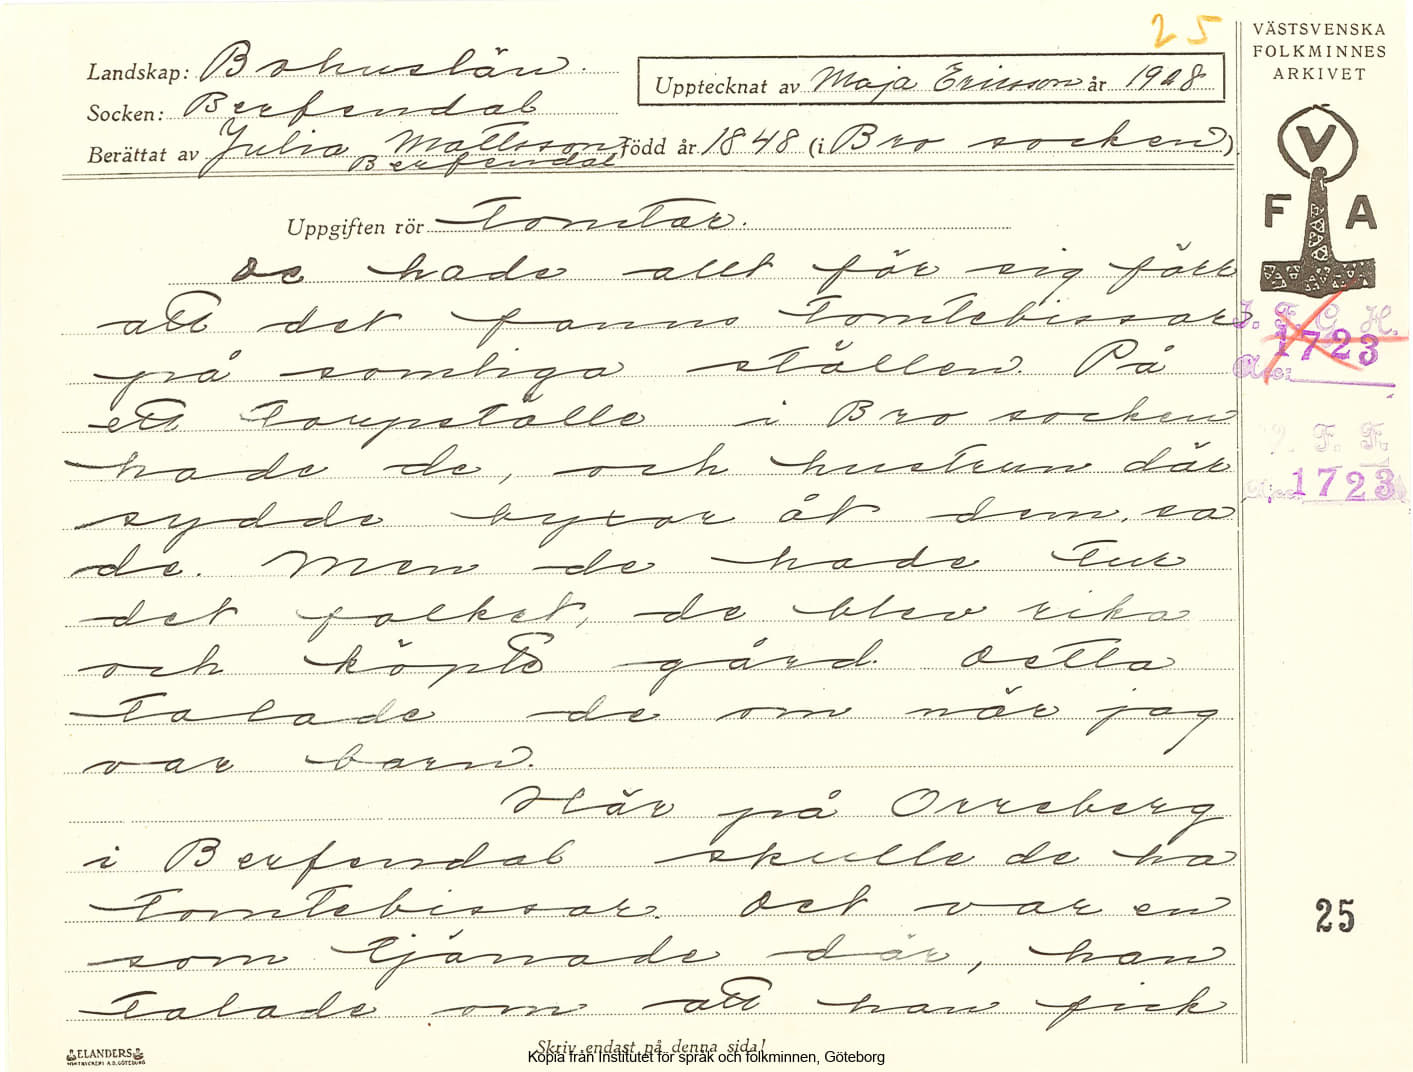 25
Landskap: Bohuslän.
Upptecknat av Maja Ericsson år 1928
VÄSTSVENSKA
FOLKMINNES
ARKIVET
Socken: Berfendal
Berättat av Julia Mattsson Född år 1848 (i Bro socken)
Berfendal
V
F A
Uppgiften rör Tomtar.
De hade allt för sig förr
att det fanns tomtebissar
på somliga ställen. På
ett torpställe i Bro socken
hade de, och hustrun där
sydde byxor åt dem, sa
de. Men de hade tur
det folket, de blev rika
och köpte gård. Detta
talade de om när jag
var barn.
Här på Orreberg
i Berfendal skulle de ha
tomtebissar. Det var en
som tjänade där, han
talade om att han fick
I. F. G. H.
1723
Acc:
V. F. F.
Acc. 1723
25
ELANDERS
BOKTRYCKERI A.B. GÖTEBORG
Skriv endast på denna sida!
Kopia från Institutet för språk och folkminnen, Göteborg